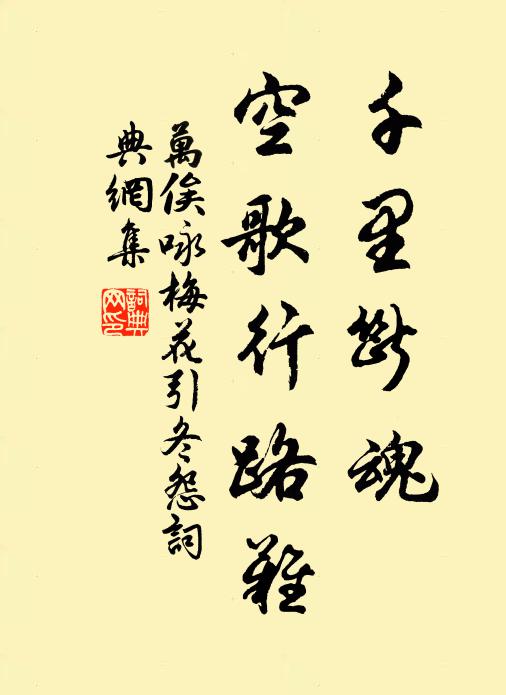 千里斷魂
空歌行路難
萬俟咏梅花引冬怨詞
典網集
詞典網印